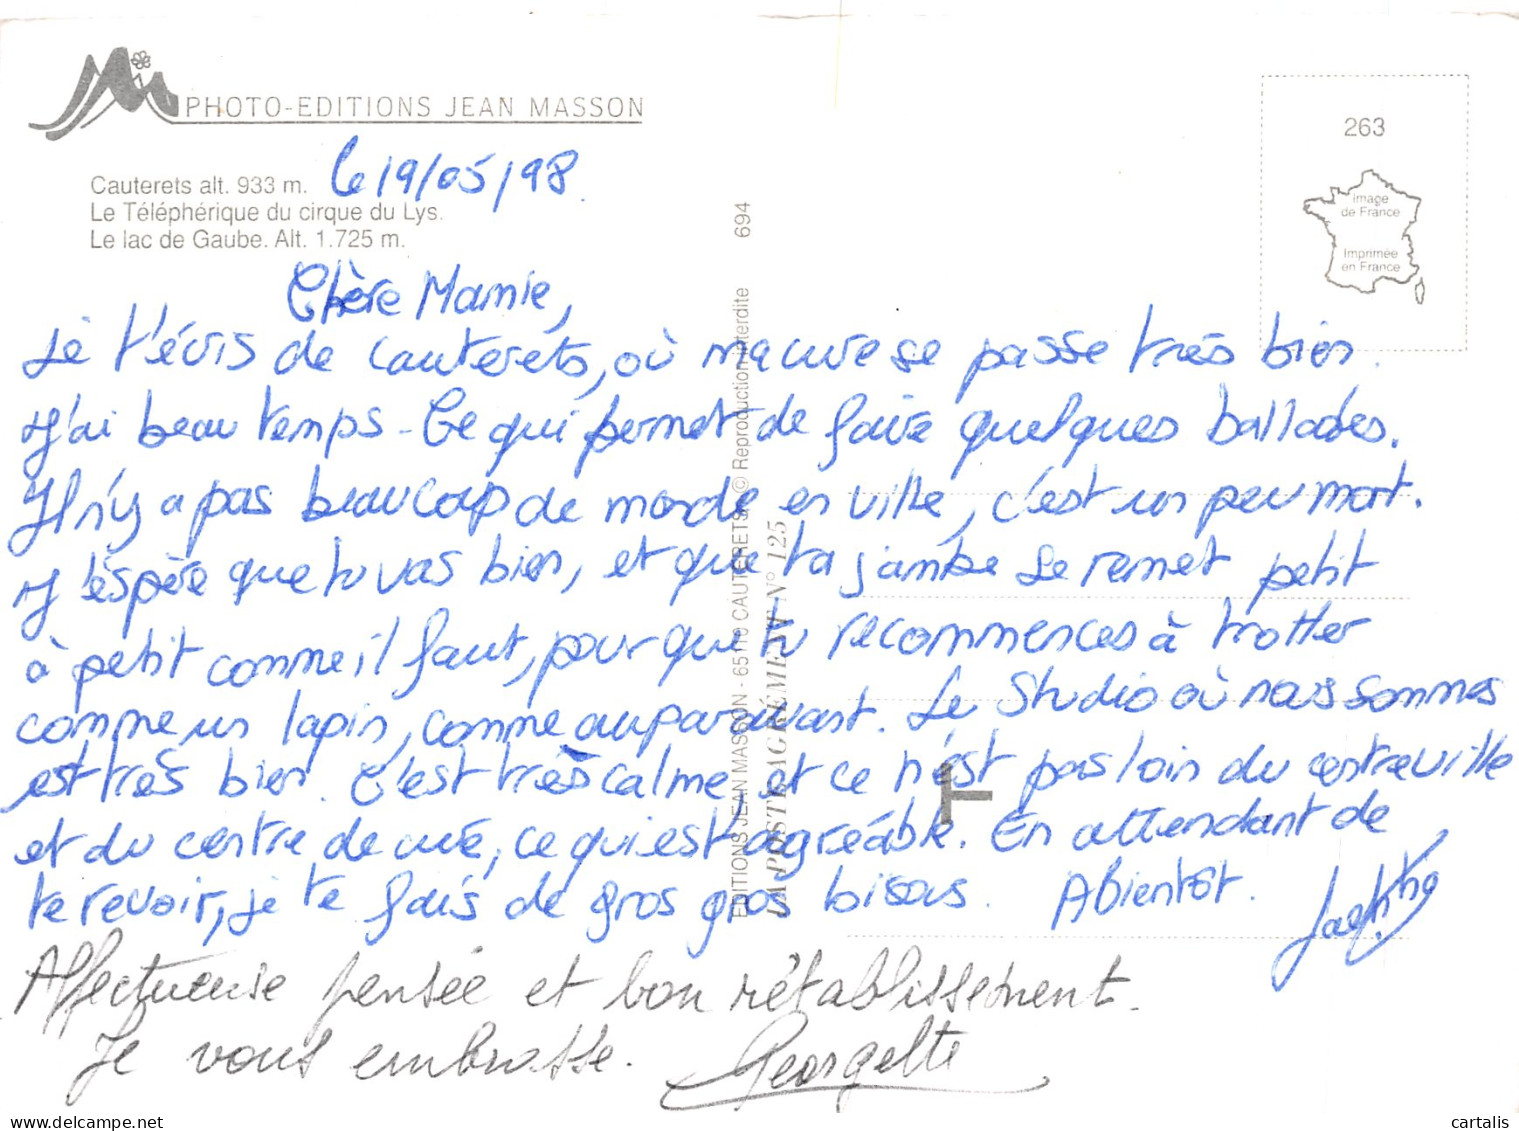 PHOTO-EDITIONS JEAN MASSON
Cauterets alt. 933 m.
Le Téléphérique du cirque du Lys.
Le lac de Gaube. Alt. 1.725 m.
263
Image
de France
Imprimée
en France
EDITIONS JEAN MASSON - 65110 CAUTERETS - © Reproduction interdite 694
LA POSTE AGRÉMENT N° 125
Le 19/05/98.
Chère Mamie,
Je t'écris de Cauterets, où ma cure se passe très bien.
J'ai beau temps - Ce qui permet de faire quelques ballades.
Il n'y a pas beaucoup de monde en ville, c'est un peu mort.
J'éspère que tu vas bien, et que ta jambe se remet petit
à petit comme il faut, pour que tu recommences à trotter
comme un lapin, comme auparavant. Le Studio où nous sommes
est très bien. C'est très calme, et ce n'est pas loin du centre ville
et du centre de cure, ce qui est agréable. En attendant de
te revoir, je te fais de gros gros bisous. A bientôt.
Affectueuse pensée et bon rétablissement.
Je vous embrasse. Georgette
cartalis